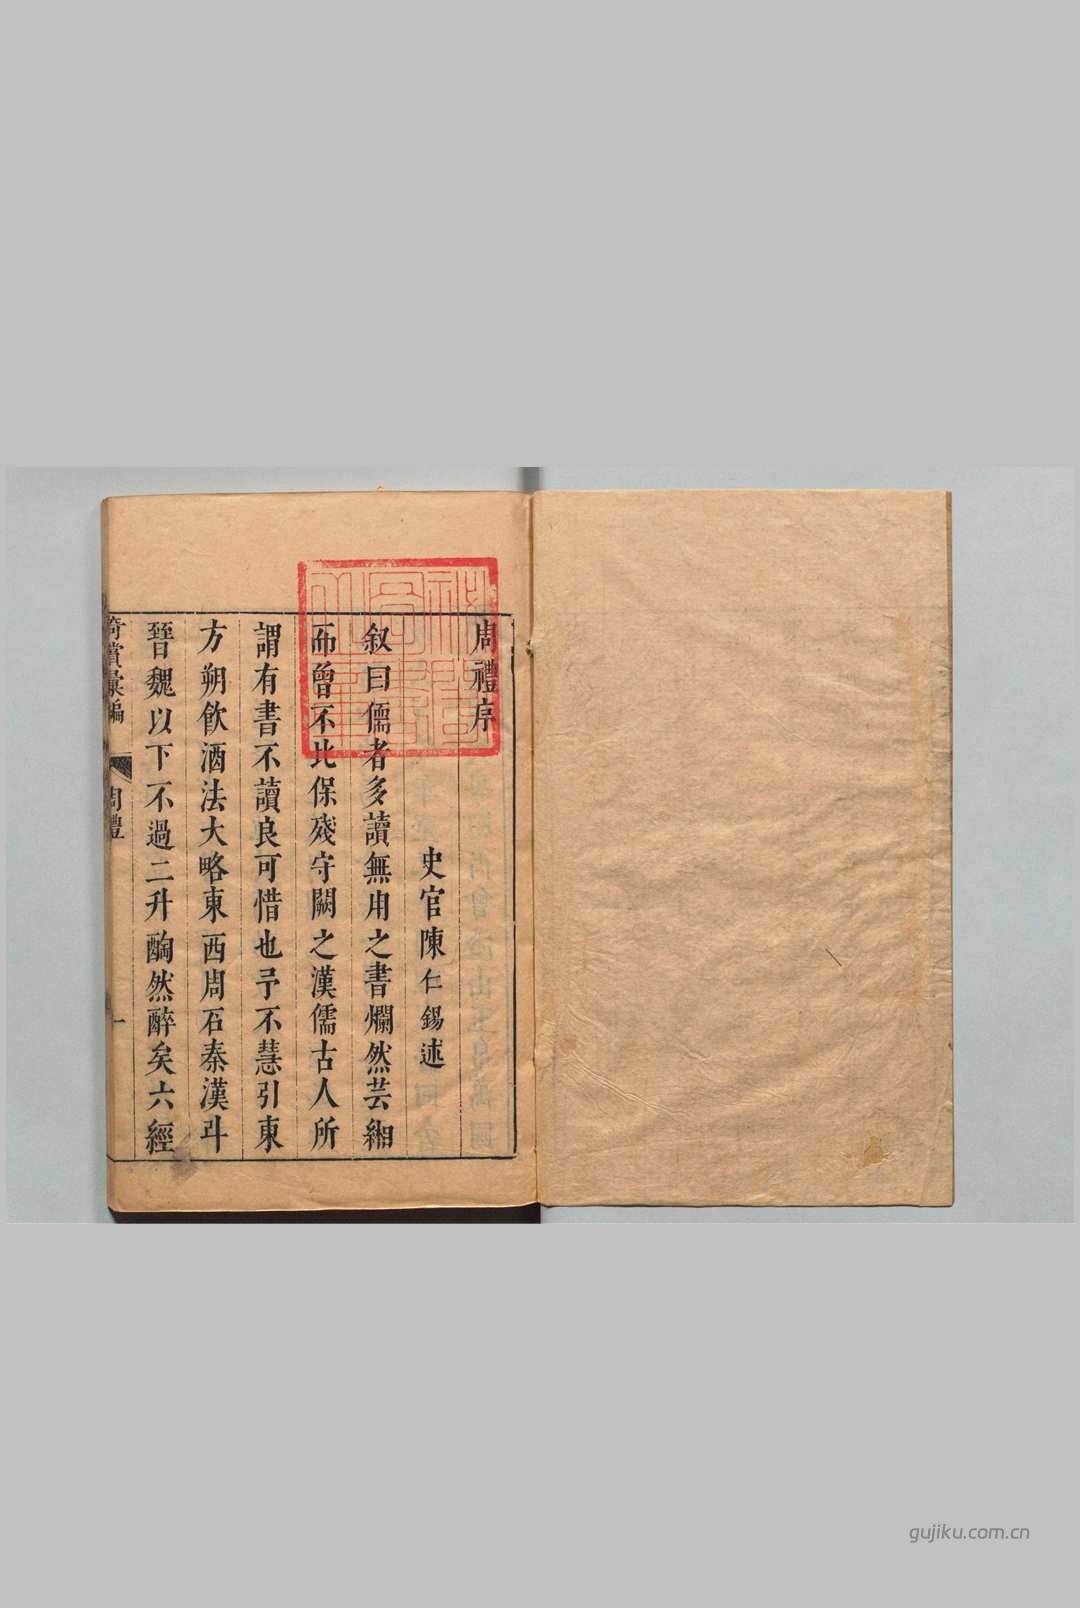 周禮序
史官陳仁錫述
叙曰儒者多讀無用之書爛然芸緗
而曾不比保殘守闕之漢儒古人所
謂有書不讀良可惜也予不慧引東
方朔飲酒法大略東西周石秦漢斗
晉魏以下不過二升醄然醉矣六經
奇賞彙編
周禮
一
gujiku.com.cn